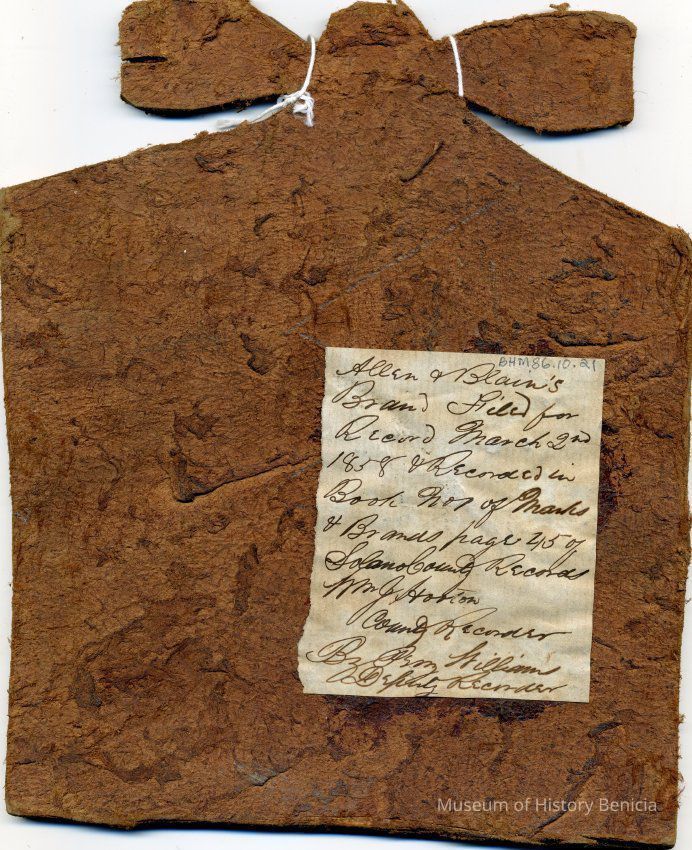 BHM86.10.21
Allen & Blain's
Brand Filed for
Record March 2nd
1858 & Recorded in
Book No 1 of Marks
& Brands page 45 of
Solano County Records
Wm J. Horton
County Recorder
By Williams
Deputy Recorder
Museum of History Benicia